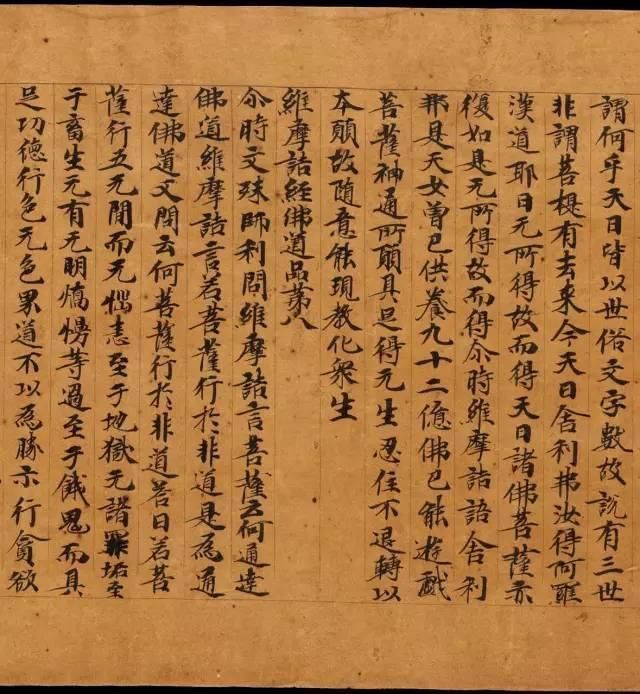 謂何乎天曰皆以世俗文字數故說有三世
非謂菩提有去來今天曰舍利弗汝得阿羅
漢道耶曰无所得故而得天曰諸佛菩薩亦
復如是无所得故而得尒時維摩詰語舍利
弗是天女曾已供養九十二億佛已能遊戲
菩薩神通所願具足得无生忍住不退轉以
本願故随意能現教化衆生
維摩詰經佛道品第八
尒時文殊師利問維摩詰言菩薩云何通達
佛道維摩詰言若菩薩行於非道是為通
達佛道又問云何菩薩行於非道荅曰若菩
薩行五无間而无惱恚至于地獄无諸罪垢至
于畜生无有无明憍慢等過至于餓鬼而具
足功德行色无色界道不以為勝示行貪欲